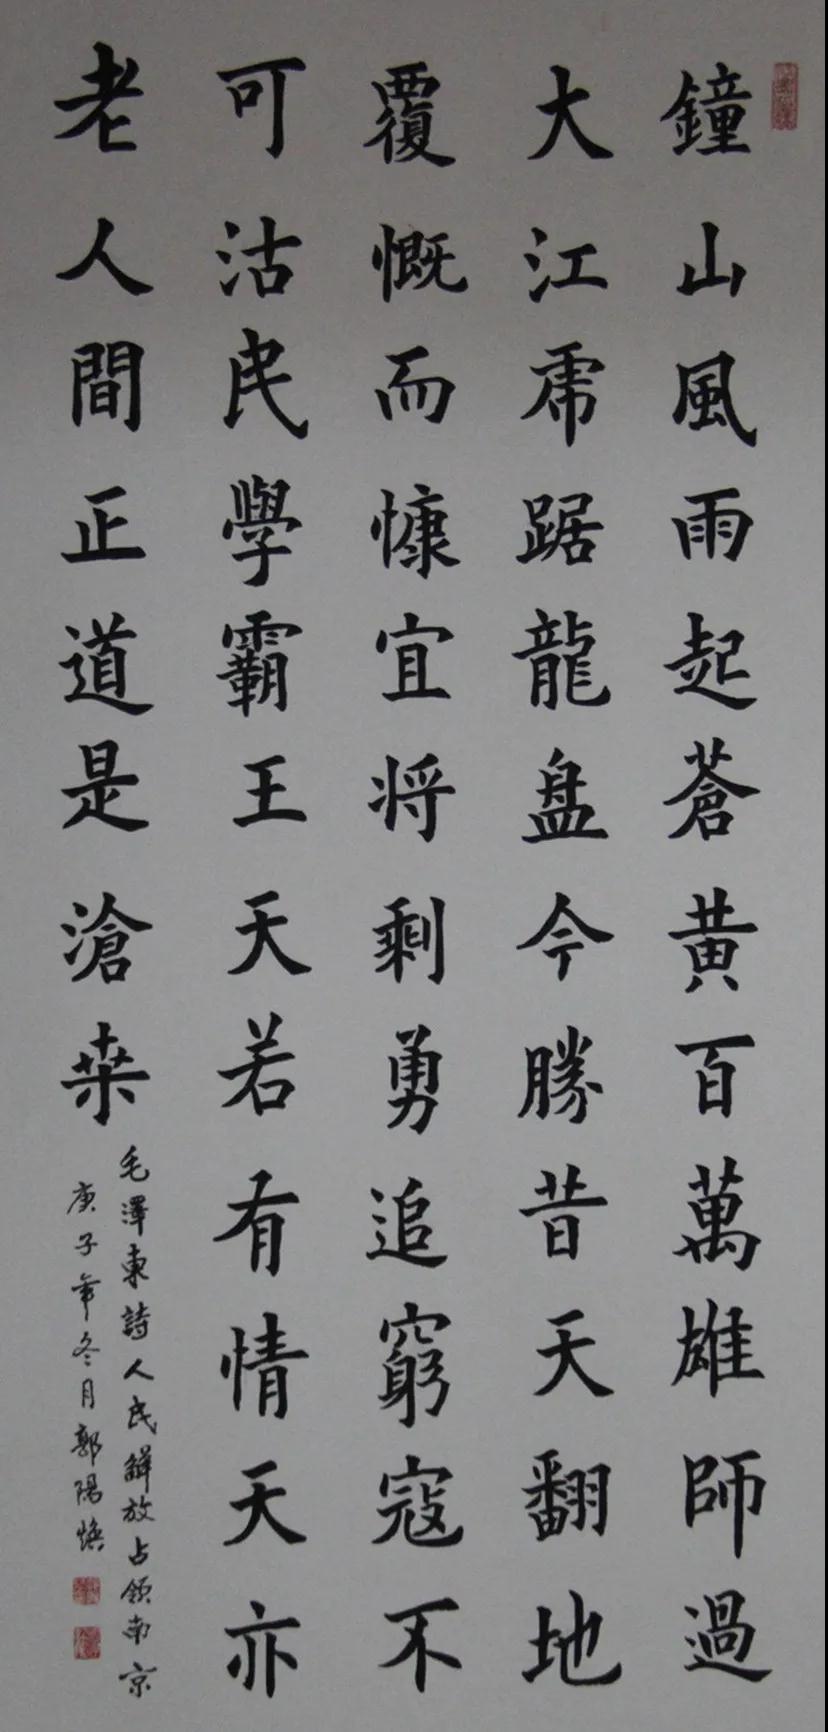 鐘山風雨起蒼黃百萬雄師過
大江虎踞龍盘今勝昔天翻地
覆慨而慷宜将剩勇追窮寇不
可沽民學霸王天若有情天亦
老人間正道是滄桒
毛澤東詩人民觧放占領南京
庚子年冬月郭陽焕